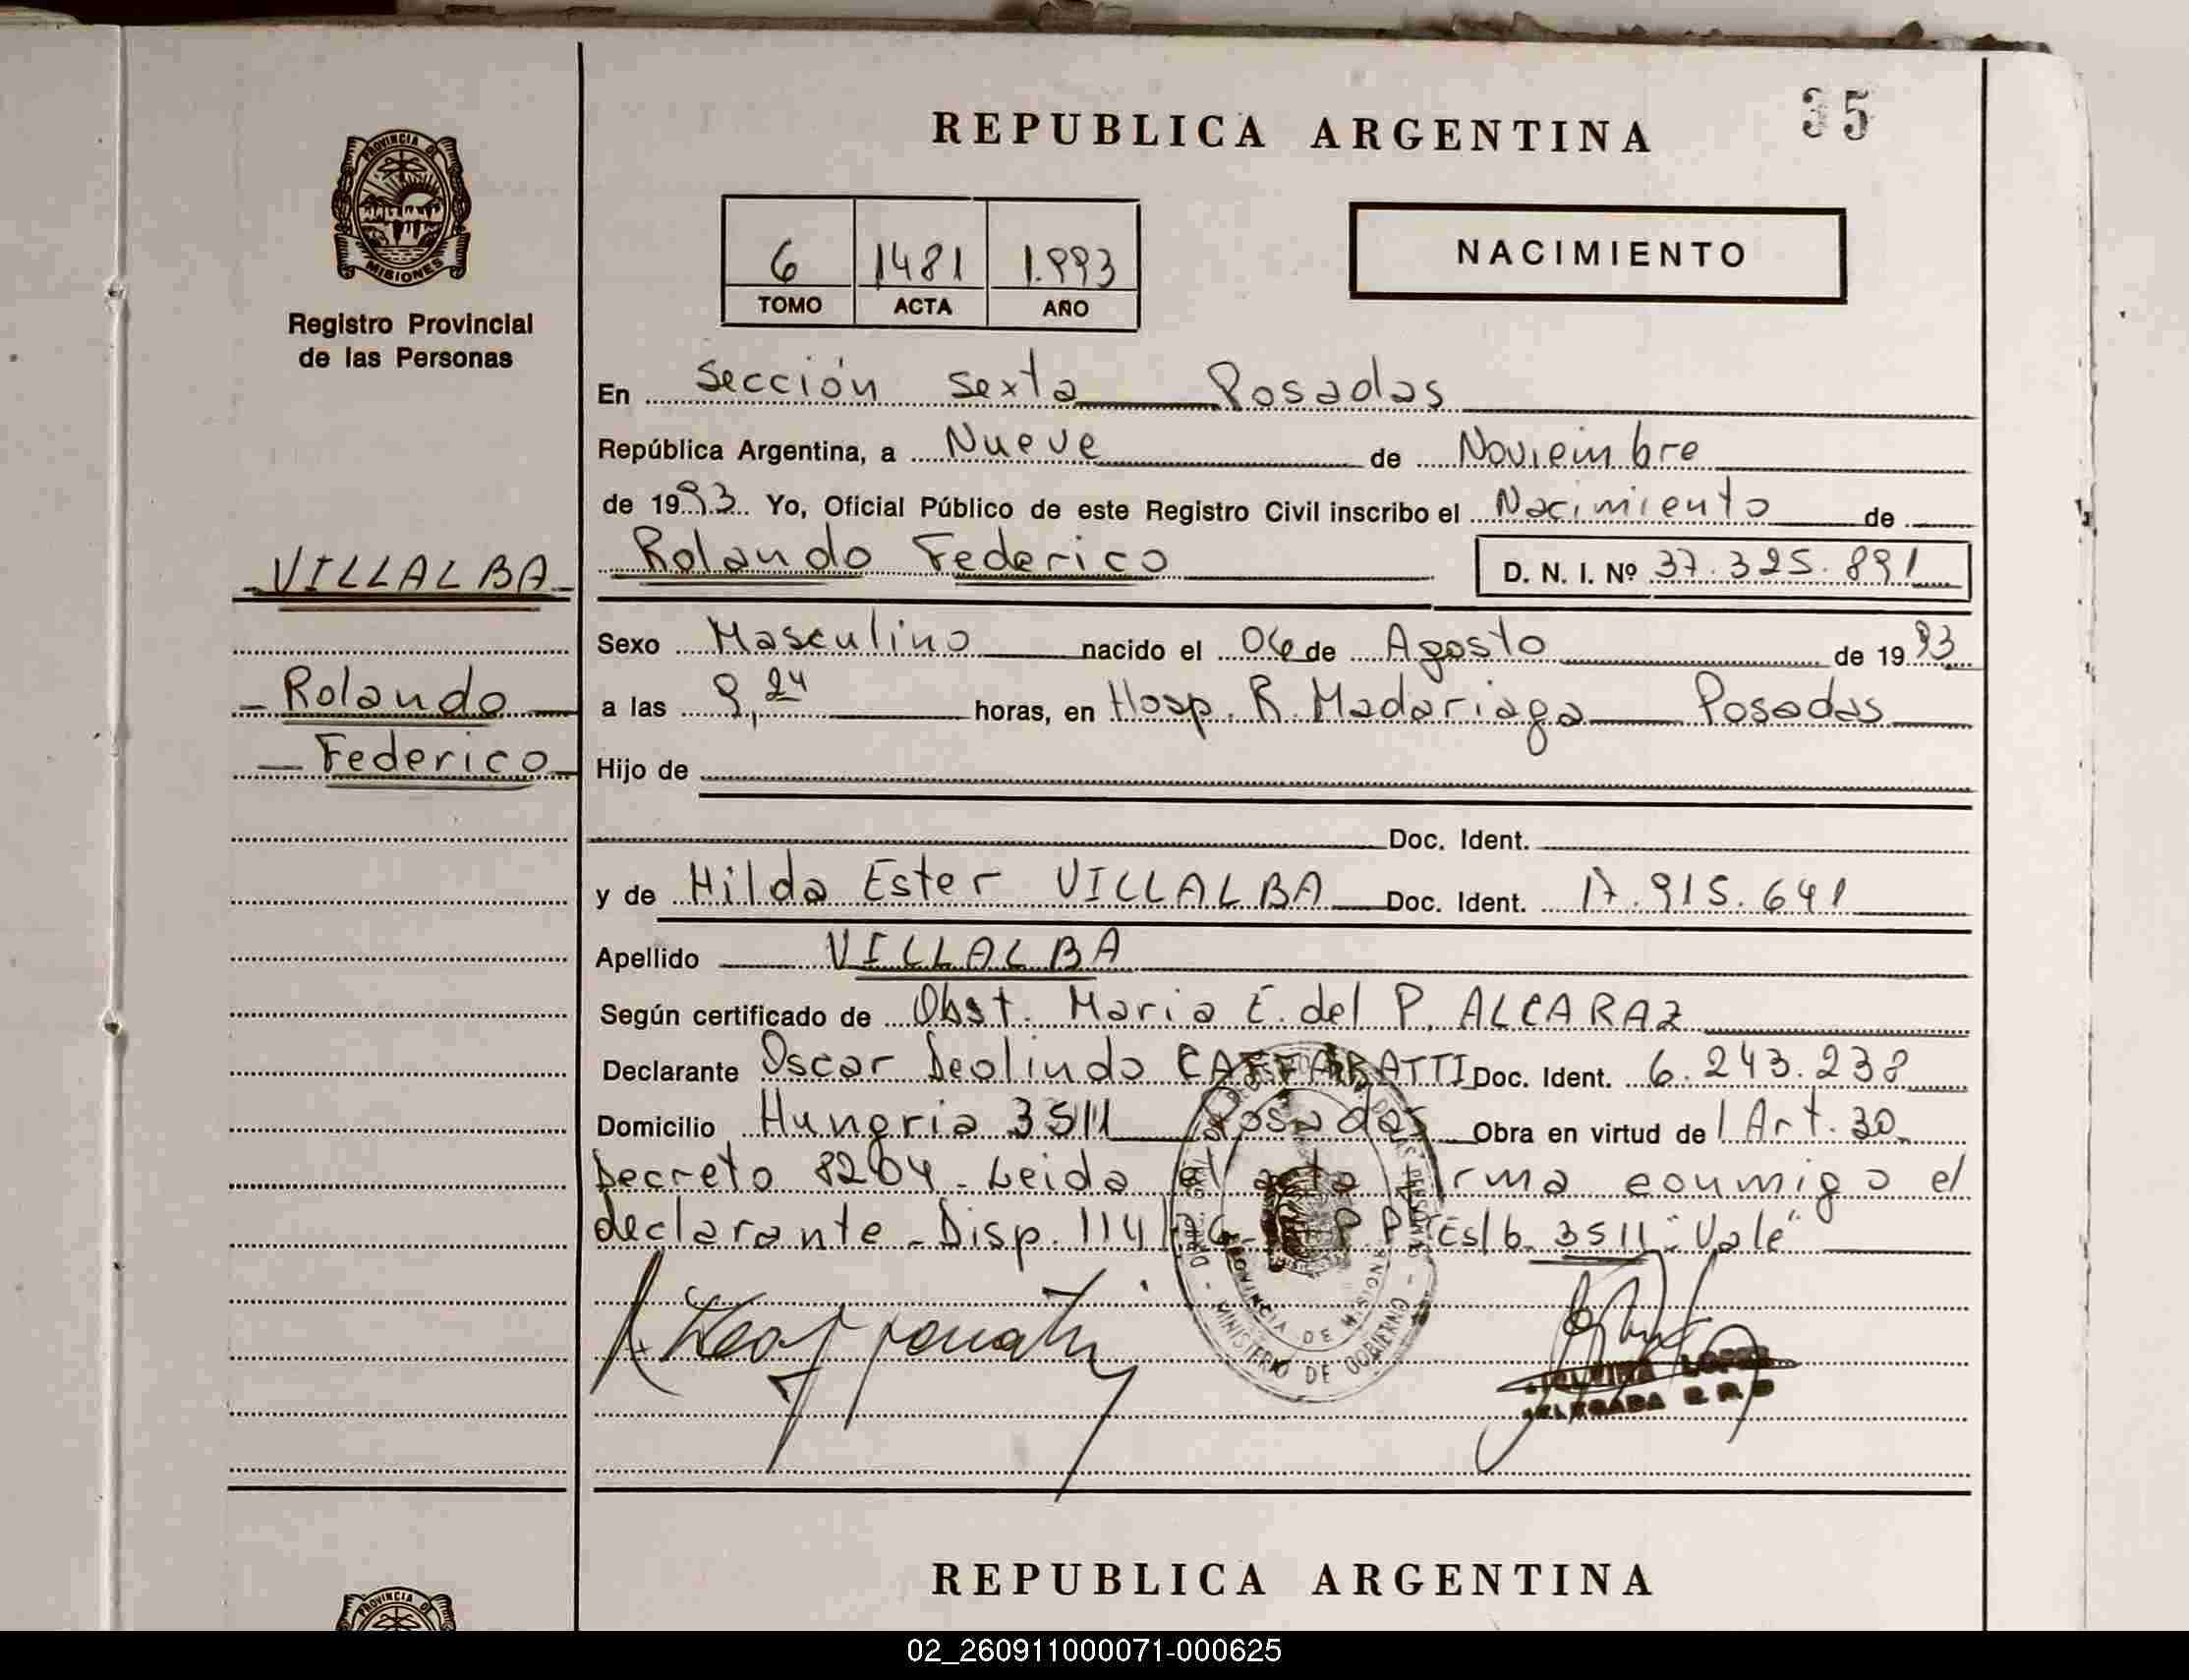 REPUBLICA ARGENTINA
35
PROVINCIA DE
MISIONES
Registro Provincial
de las Personas
6 1481 1.993
TOMO ACTA AÑO
NACIMIENTO
En Sección Sexta Posadas
República Argentina, a Nueve de Noviembre
de 1993. Yo, Oficial Público de este Registro Civil inscribo el Nacimiento de
VILLALBA
Rolando Federico D. N. I. Nº 37.325.891
Sexo Masculino nacido el 06 de Agosto de 1993
Rolando
a las 9,24 horas, en Hosp. R. Madariaga Posadas
Federico
Hijo de
Doc. Ident.
y de Hilda Ester VILLALBA Doc. Ident. 17.915.641
Apellido VILLALBA
Según certificado de Obst. Maria E. del P. ALCARAZ
Declarante Oscar Deolindo CAFFARATTI Doc. Ident. 6.243.238
Domicilio Hungria 3511 Posadas Obra en virtud del Art. 30
Decreto 8204 - Leida el acta firma conmigo el
declarante - Disp. 114 P.P. Es/b 3511 "Vale"
PROVINCIA DE MISIONES
MINISTERIO DE GOBIERNO
LOPEZ
DELEGADA R. P. P
REPUBLICA ARGENTINA
PROVINCIA DE
02_260911000071-000625